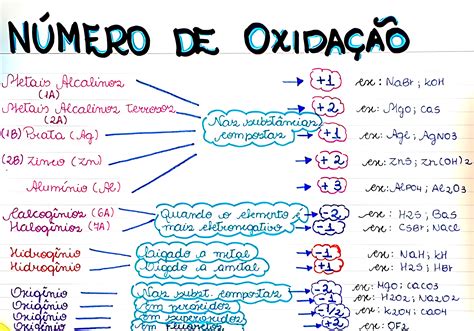 NÚMERO DE OXIDAÇÃO
Metais Alcalinos → +1 ex: NaBr; KOH
(1A)
Metais Alcalinos terrosos → +2 ex: MgO; CaS
(2A)
Nas substâncias compostas
(1B) Prata (Ag) → +1 ex: AgCl, AgNO3
(2B) Zinco (Zn) → +2 ex: ZnS; Zn(OH)2
Alumínio (Al) → +3 ex: AlPO4; Al2O3
Calcogênios (6A) Quando o elemento é → -2 ex: H2S; BaS
Halogênios (7A) mais eletronegativo → -1 ex: CSBr; NaCl
Hidrogênio Ligado a metal → -1 ex: NaH; KH
Hidrogênio Ligado a ametal → +1 ex: H2S; HBr
Oxigênio Nas subst. compostas → -2 ex: HgO; CaCO3
Oxigênio em peróxidos → -1 ex: H2O2; Na2O2
Oxigênio em superóxidos → -1/2 ex: K2O4
Oxigênio em fluoretos → +2 ex: OF2